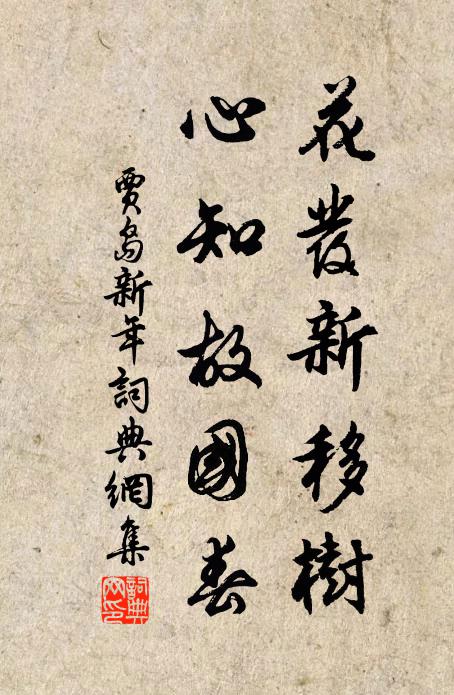 花發新移樹
心知故國春
賈島新年詞典網集
詞典網印